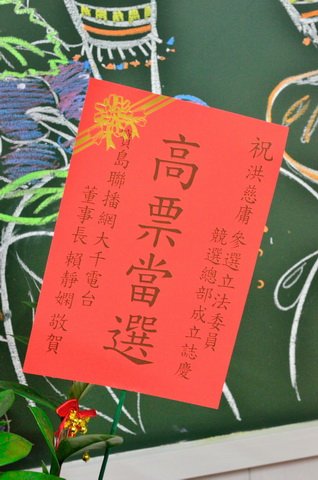 祝洪慈庸參選立法委員
競選總部成立誌慶
高票當選
寶島聯播網大千電台
董事長賴靜嫻敬賀